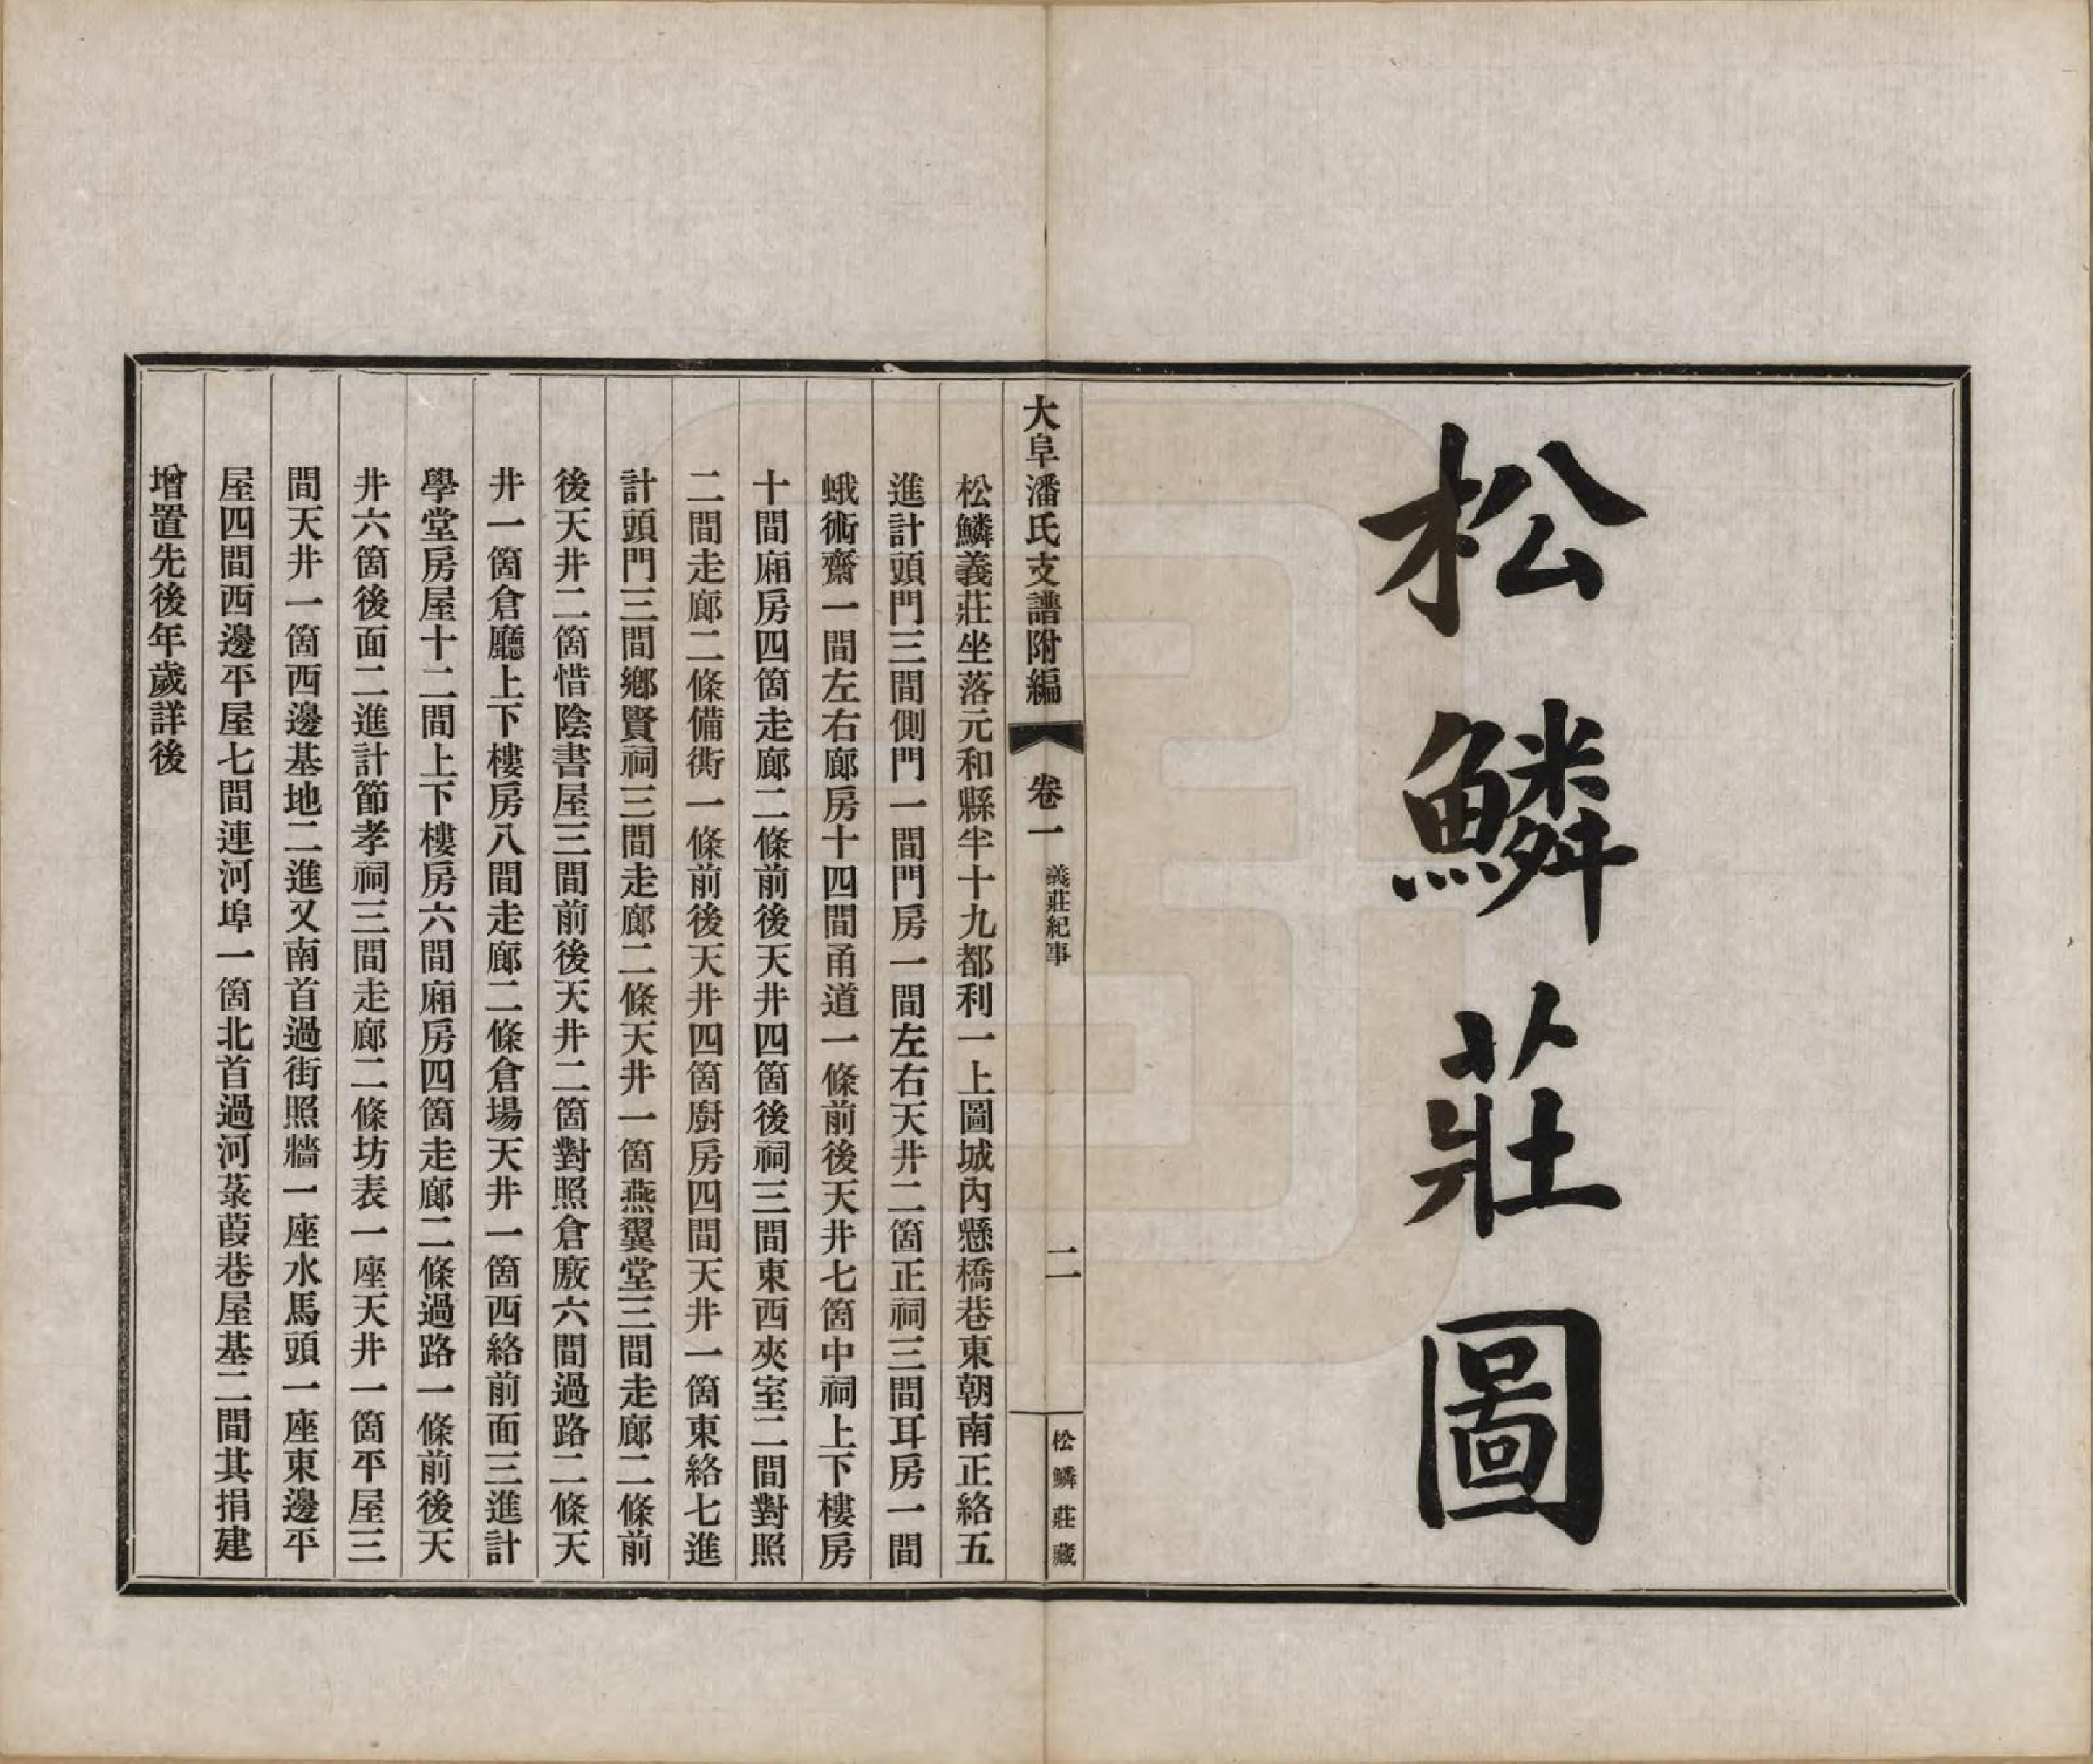 松鱗莊圖
大阜潘氏支譜附編
卷一
義莊紀事
二
松鱗莊藏
松鱗義莊坐落元和縣半十九都利一上圖城內懸橋巷東朝南正絡五
進計頭門三間側門一間門房一間左右天井二箇正祠三間耳房一間
蛾術齋一間左右廊房十四間甬道一條前後天井七箇中祠上下樓房
十間廂房四箇走廊二條前後天井四箇後祠三間東西夾室二間對照
二間走廊二條備衖一條前後天井四箇廚房四間天井一箇東絡七進
計頭門三間鄉賢祠三間走廊二條天井一箇燕翼堂三間走廊二條前
後天井二箇惜陰書屋三間前後天井二箇對照倉廒六間過路二條天
井一箇倉廳上下樓房八間走廊二條倉場天井一箇西絡前面三進計
學堂房屋十二間上下樓房六間廂房四箇走廊二條過路一條前後天
井六箇後面二進計節孝祠三間走廊二條坊表一座天井一箇平屋三
間天井一箇西邊基地二進又南首過街照牆一座水馬頭一座東邊平
屋四間西邊平屋七間連河埠一箇北首過河菉葭巷屋基二間其捐建
增置先後年歲詳後